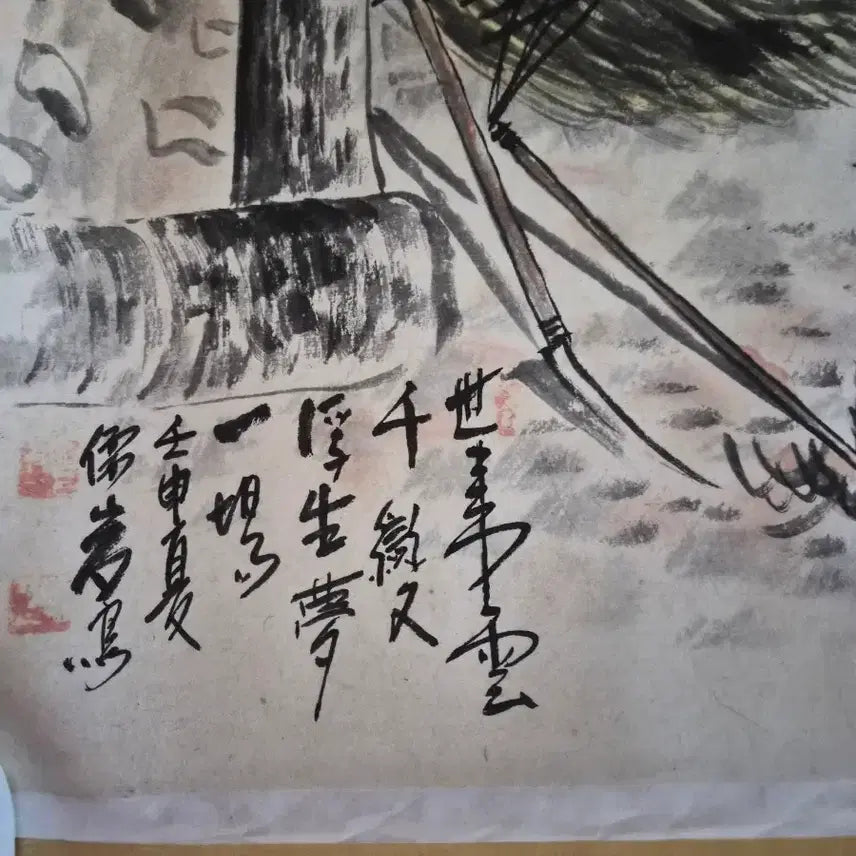 世事雲
千變
浮生夢
一場
壬申夏
岩寫